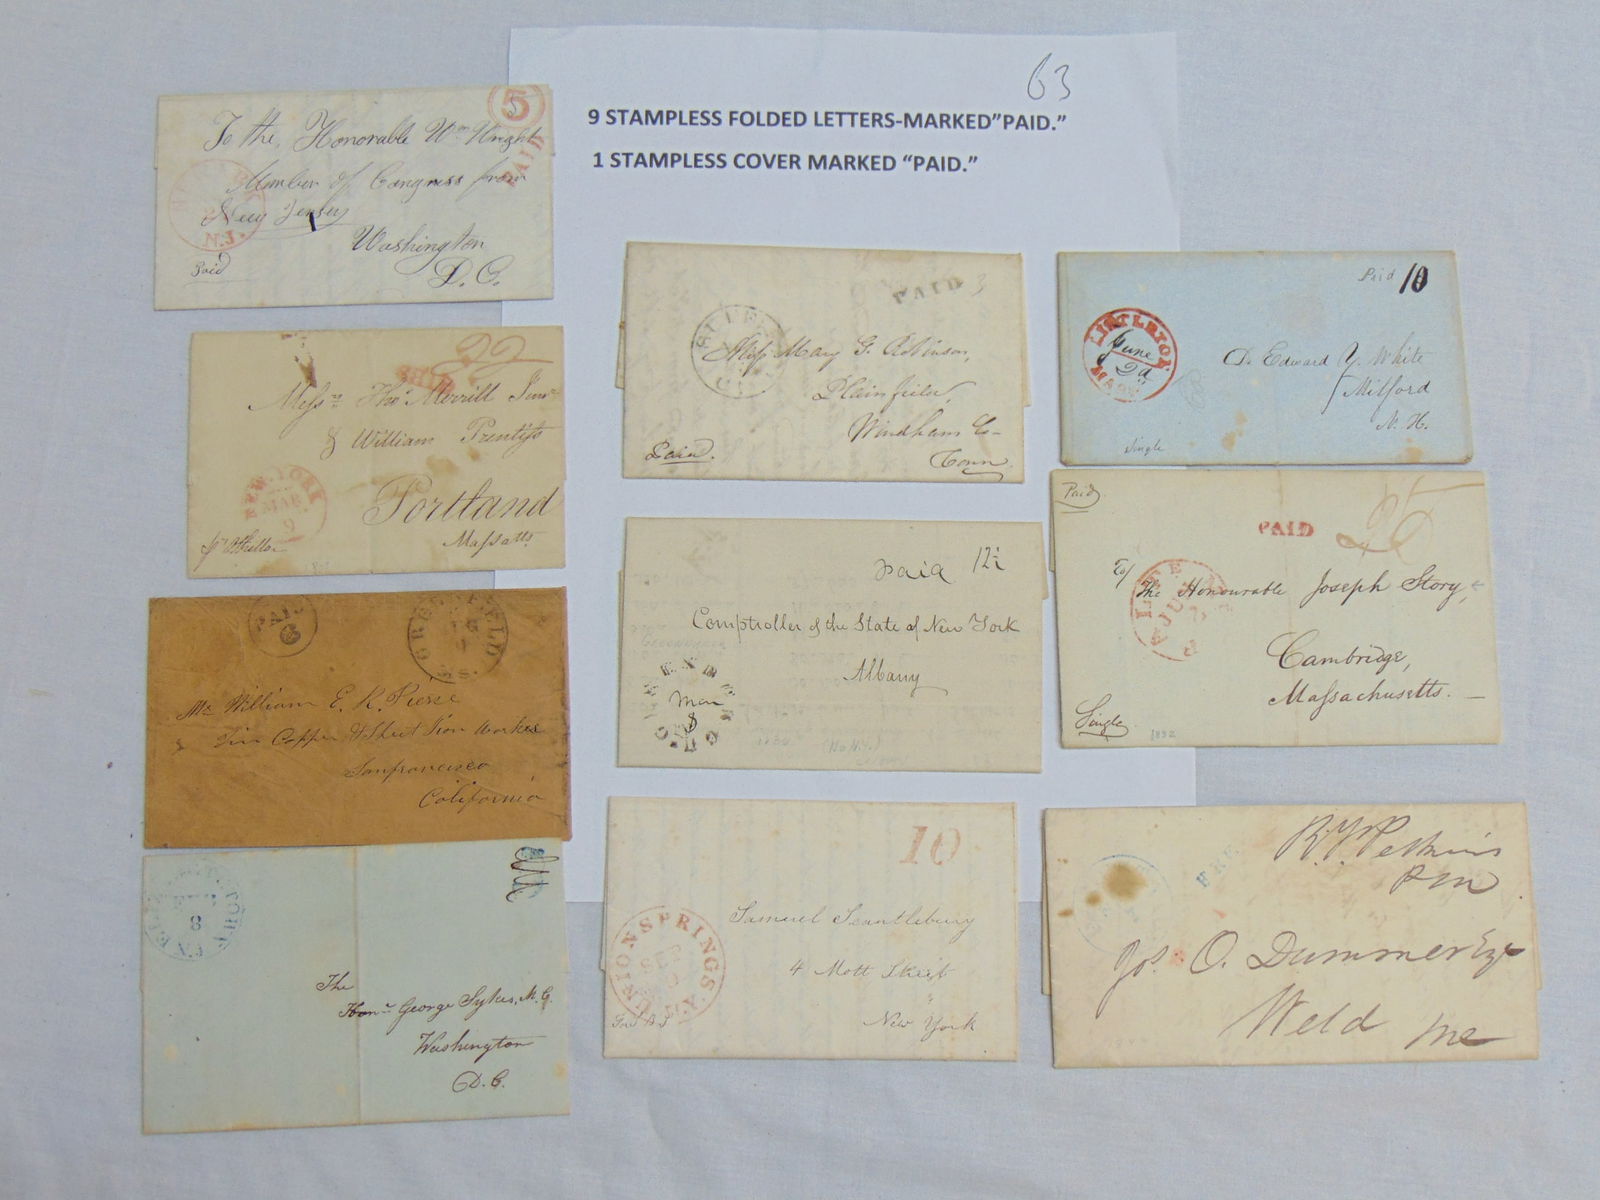 63
9 STAMPLESS FOLDED LETTERS-MARKED"PAID."
1 STAMPLESS COVER MARKED “PAID.”
5
PAID
To the Honorable Wm Wright
Member of Congress from
New Jersey
N.J.
Washington
D. C.
Paid
22
SHIP
Messrs Thos Merrill Junr
& William Prentiss
NEW-YORK
MAR
9
Portland
Massatts
PAID
6
GREENFIELD
MS.
Mr William E. K. Pierce
Tin Copper & Sheet Iron Works
Sanfrancisco
California
8
The
Honr. George Sykes, M.C.
Washington
D. C.
PAID 3
Miss Mary G. Robinson,
Plainfield,
Windham Co-
Conn.
Paid.
paid 12½
Comptroller of the State of New York
Albany
May
8
10
UNION SPRINGS N.Y.
Samuel Scantlebury
4 Mott Street
New York
Paid 10
LITTLETON
June
2d
MASS
Dr Edward Y. White
Milford
N. H.
Single
Paid
PAID 25
To/
The Honourable Joseph Story,
Cambridge,
Massachusetts.
Single
1832
FREE
R. Y. Perkins
P M
Jos. O. Dummer Esq
Weld Me